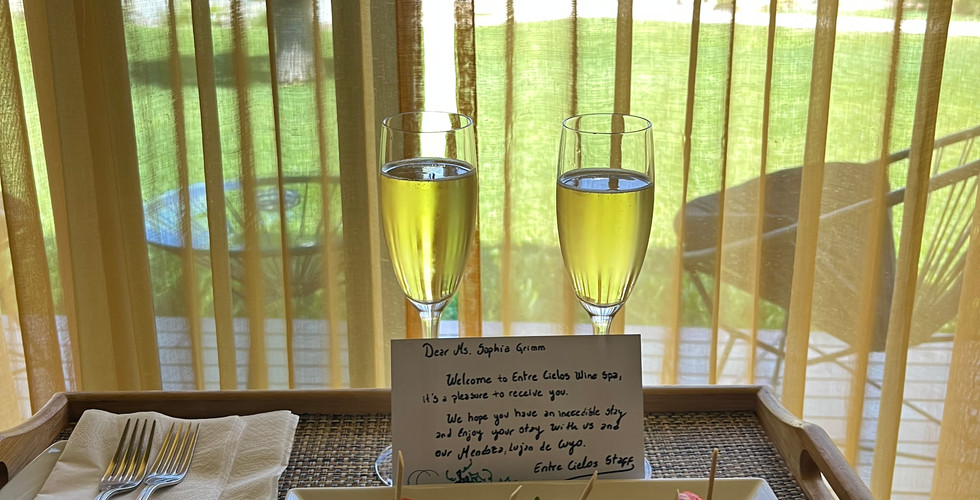 Dear Ms. Sophia Grimm
Welcome to Entre Cielos Wine Spa,
it's a pleasure to receive you.
We hope you have an incredible stay
and enjoy your stay with us and
our Mendoza, Luján de Cuyo.
Entre Cielos Staff